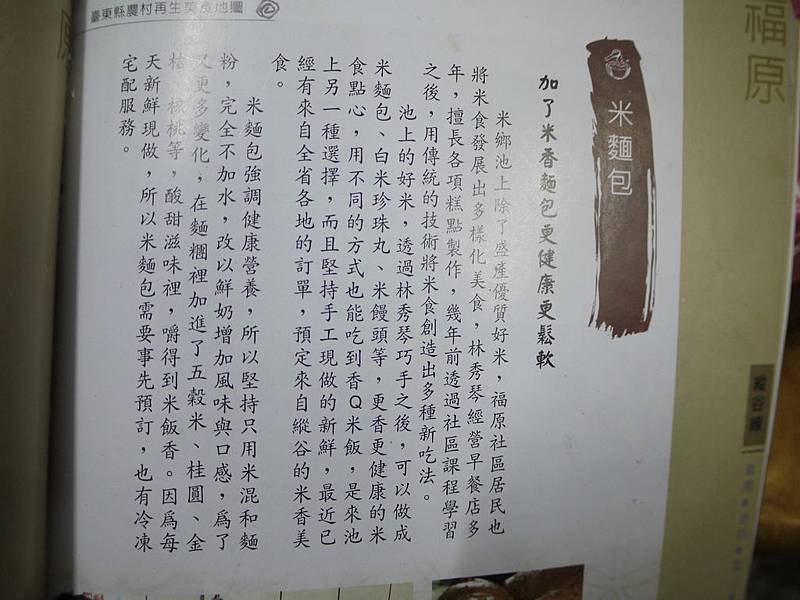 福原
縱谷線
米麵包
加了米香麵包更健康更鬆軟
米鄉池上除了盛產優質好米，福原社區居民也
將米食發展出多樣化美食，林秀琴經營早餐店多
年，擅長各項糕點製作，幾年前透過社區課程學習
之後，用傳統的技術將米食創造出多種新吃法。
池上的好米，透過林秀琴巧手之後，可以做成
米麵包、白米珍珠丸、米饅頭等，更香更健康的米
食點心，用不同的方式也能吃到香Q米飯，是來池
上另一種選擇，而且堅持手工現做的新鮮，最近已
經有來自全省各地的訂單，預定來自縱谷的米香美
食。
米麵包強調健康營養，所以堅持只用米混和麵
粉，完全不加水，改以鮮奶增加風味與口感，為了
又更多變化，在麵糰裡加進了五穀米、桂圓、金
桔、核桃等，酸甜滋味裡，嚼得到米飯香。因為每
天新鮮現做，所以米麵包需要事先預訂，也有冷凍
宅配服務。
臺東縣農村再生美食地圖